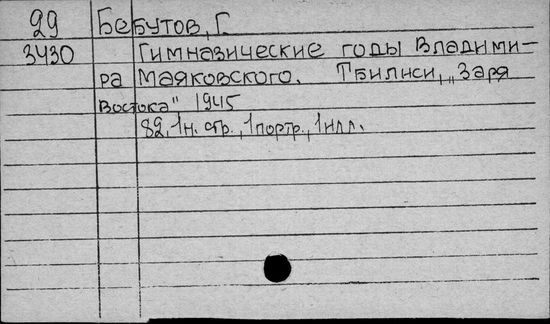 29 Бебутов, Г.
3430 Гимназические годы Владими-
ра Маяковского. Тбилиси, „Заря
Востока" 1945
82, 1н. стр., 1 портр., 1 илл.